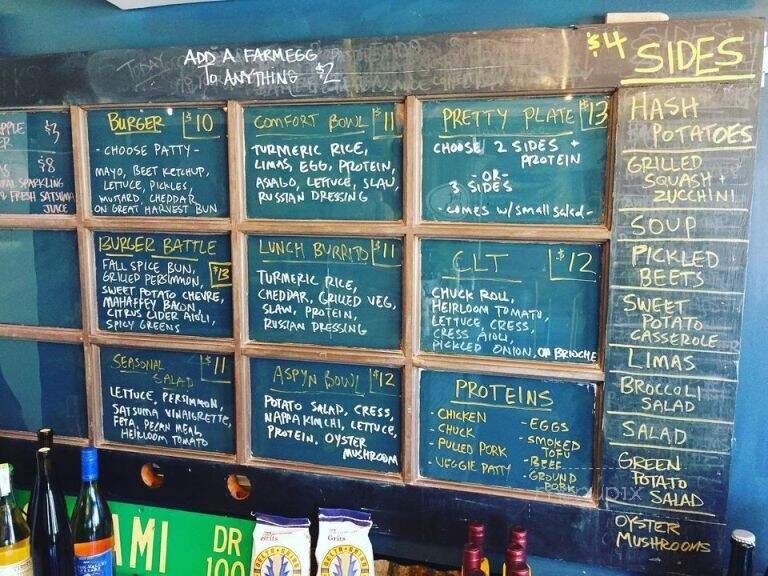 ADD A FARM EGG
TO ANYTHING $2
$4 SIDES
HASH
POTATOES
GRILLED
SQUASH +
ZUCCHINI
SOUP
PICKLED
BEETS
SWEET
POTATO
CASSEROLE
LIMAS
BROCCOLI
SALAD
SALAD
GREEN
POTATO
SALAD
OYSTER
MUSHROOMS
$3
$8
SPARKLING
FRESH SATSUMA
JUICE
BURGER $10
- CHOOSE PATTY -
MAYO, BEET KETCHUP,
LETTUCE, PICKLES,
MUSTARD, CHEDDAR
ON GREAT HARVEST BUN
COMFORT BOWL $11
TURMERIC RICE,
LIMAS, EGG, PROTEIN,
ASIAGO, LETTUCE, SLAW,
RUSSIAN DRESSING
PRETTY PLATE $13
CHOOSE 2 SIDES +
PROTEIN
-OR-
3 SIDES
- COMES W/ small salad -
BURGER BATTLE
$13
FALL SPICE BUN,
GRILLED PERSIMMON,
SWEET POTATO CHEVRE,
MAHAFFEY BACON
CITRUS CIDER AIOLI,
SPICY GREENS
LUNCH BURRITO $11
TURMERIC RICE,
CHEDDAR, GRILLED VEG,
SLAW, PROTEIN,
RUSSIAN DRESSING
CLT $12
CHUCK ROLL,
HEIRLOOM TOMATO,
LETTUCE, CRESS,
CRESS AIOLI,
PICKLED ONION, ON BRIOCHE
SEASONAL
SALAD $11
LETTUCE, PERSIMMON,
SATSUMA VINAIGRETTE,
FETA, PECAN MEAL,
HEIRLOOM TOMATO
ASPYN BOWL $12
POTATO SALAD, CRESS,
NAPPA KIMCHI, LETTUCE,
PROTEIN, OYSTER
MUSHROOM
PROTEINS
- CHICKEN
- CHUCK
- PULLED PORK
- VEGGIE PATTY
- EGGS
- SMOKED
TOFU
- BEEF
- GROUND
PORK
AMI DR
100
Grits
Grits